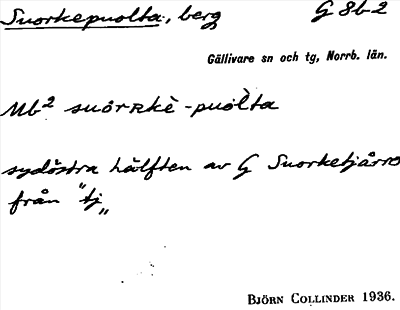 Snorkepuolta, berg G 8b2
Gällivare sn och tg, Norrb. län.
Mb² snorRkè-puòlta
sydöstra hälften av G Snorketjårro
från "tj„
BJÖRN COLLINDER 1936.